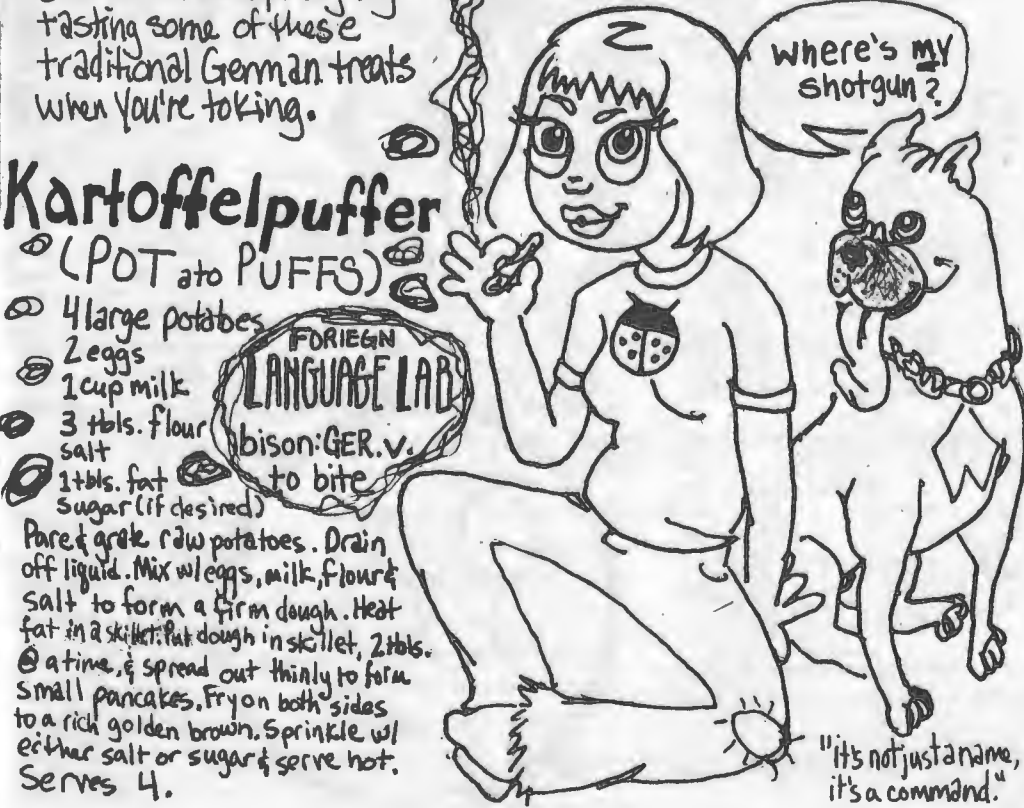 tasting some of these
traditional German treats
when you're toking.
Kartoffelpuffer
(POTato PUFFS)
4 large potatoes
2 eggs
1 cup milk
3 tbls. flour
salt
1 tbls. fat
sugar (if desired)
Pare & grate raw potatoes. Drain
off liquid. Mix w/ eggs, milk, flour &
salt to form a firm dough. Heat
fat in a skillet. Put dough in skillet, 2 tbls.
@ a time, & spread out thinly to form
small pancakes. Fry on both sides
to a rich golden brown. Sprinkle w/
either salt or sugar & serve hot.
Serves 4.
FORIEGN
LANGUAGE LAB
bison: GER. v.
to bite
where's my
shotgun?
"it's not just a name,
it's a command."